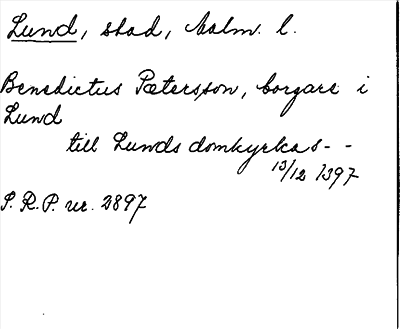 Lund, stad, Malm. l.
Benedictus Pætersson, borgare i
Lund
till Lunds domkyrka s - -
13/12 1397
S. R. P. nr. 2897